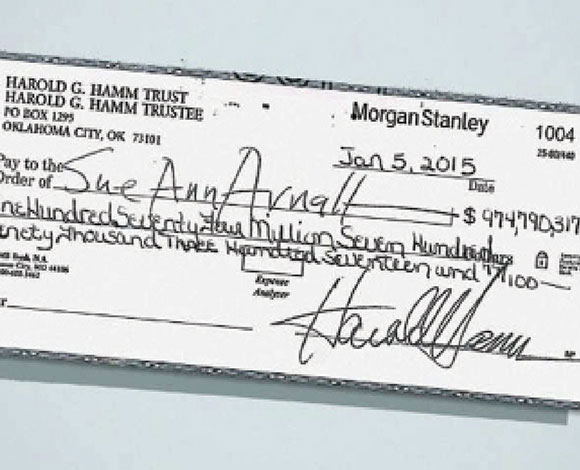 HAROLD G. HAMM TRUST
HAROLD G. HAMM TRUSTEE
PO BOX 1295
OKLAHOMA CITY, OK 73101
MorganStanley
1004
Jan 5, 2015
Date
Pay to the
Order of Sue Ann Arnall $ 974,790,317
Hundred Seventy Four Million Seven Hundred
Thousand Three Hundred Seventeen and 77/100
Bank, N.A.
Expense
Analyzer
Harold Hamm